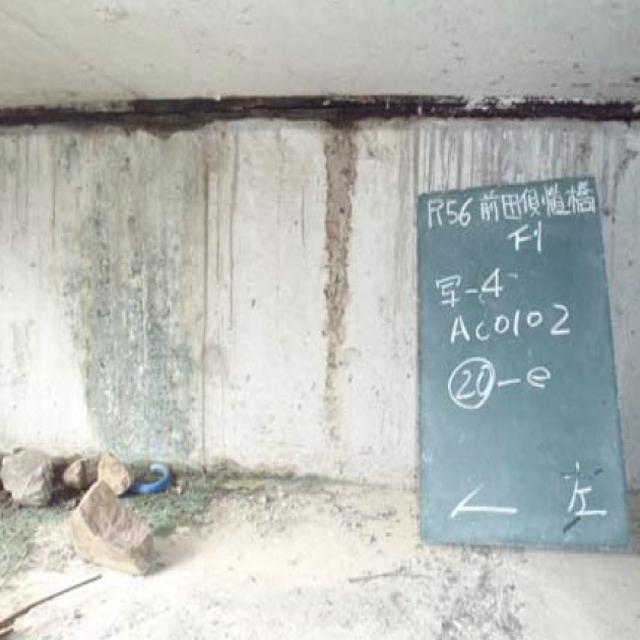 R56 前田側道橋
A1
写-4
Ac0102
⑳-e
左